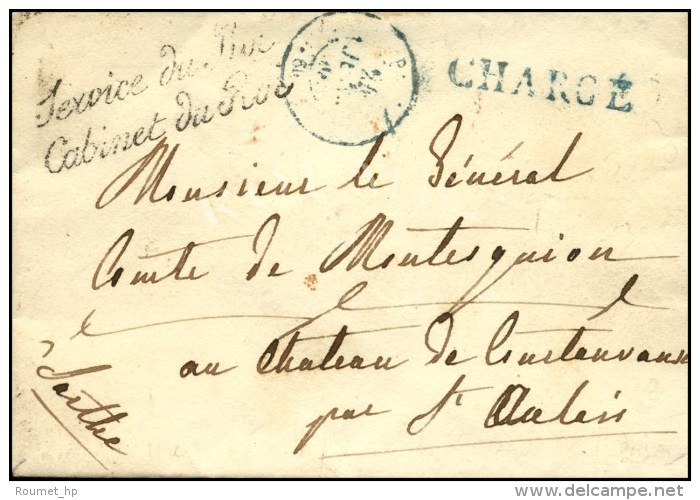 Service du Roi
Cabinet du Roi
CHARGÉ
Monsieur le Général
Comte de Montesquiou
au Chateau de Courtanvaux
par St Calais
Sarthe
Roumet_hp
© delcampe.net